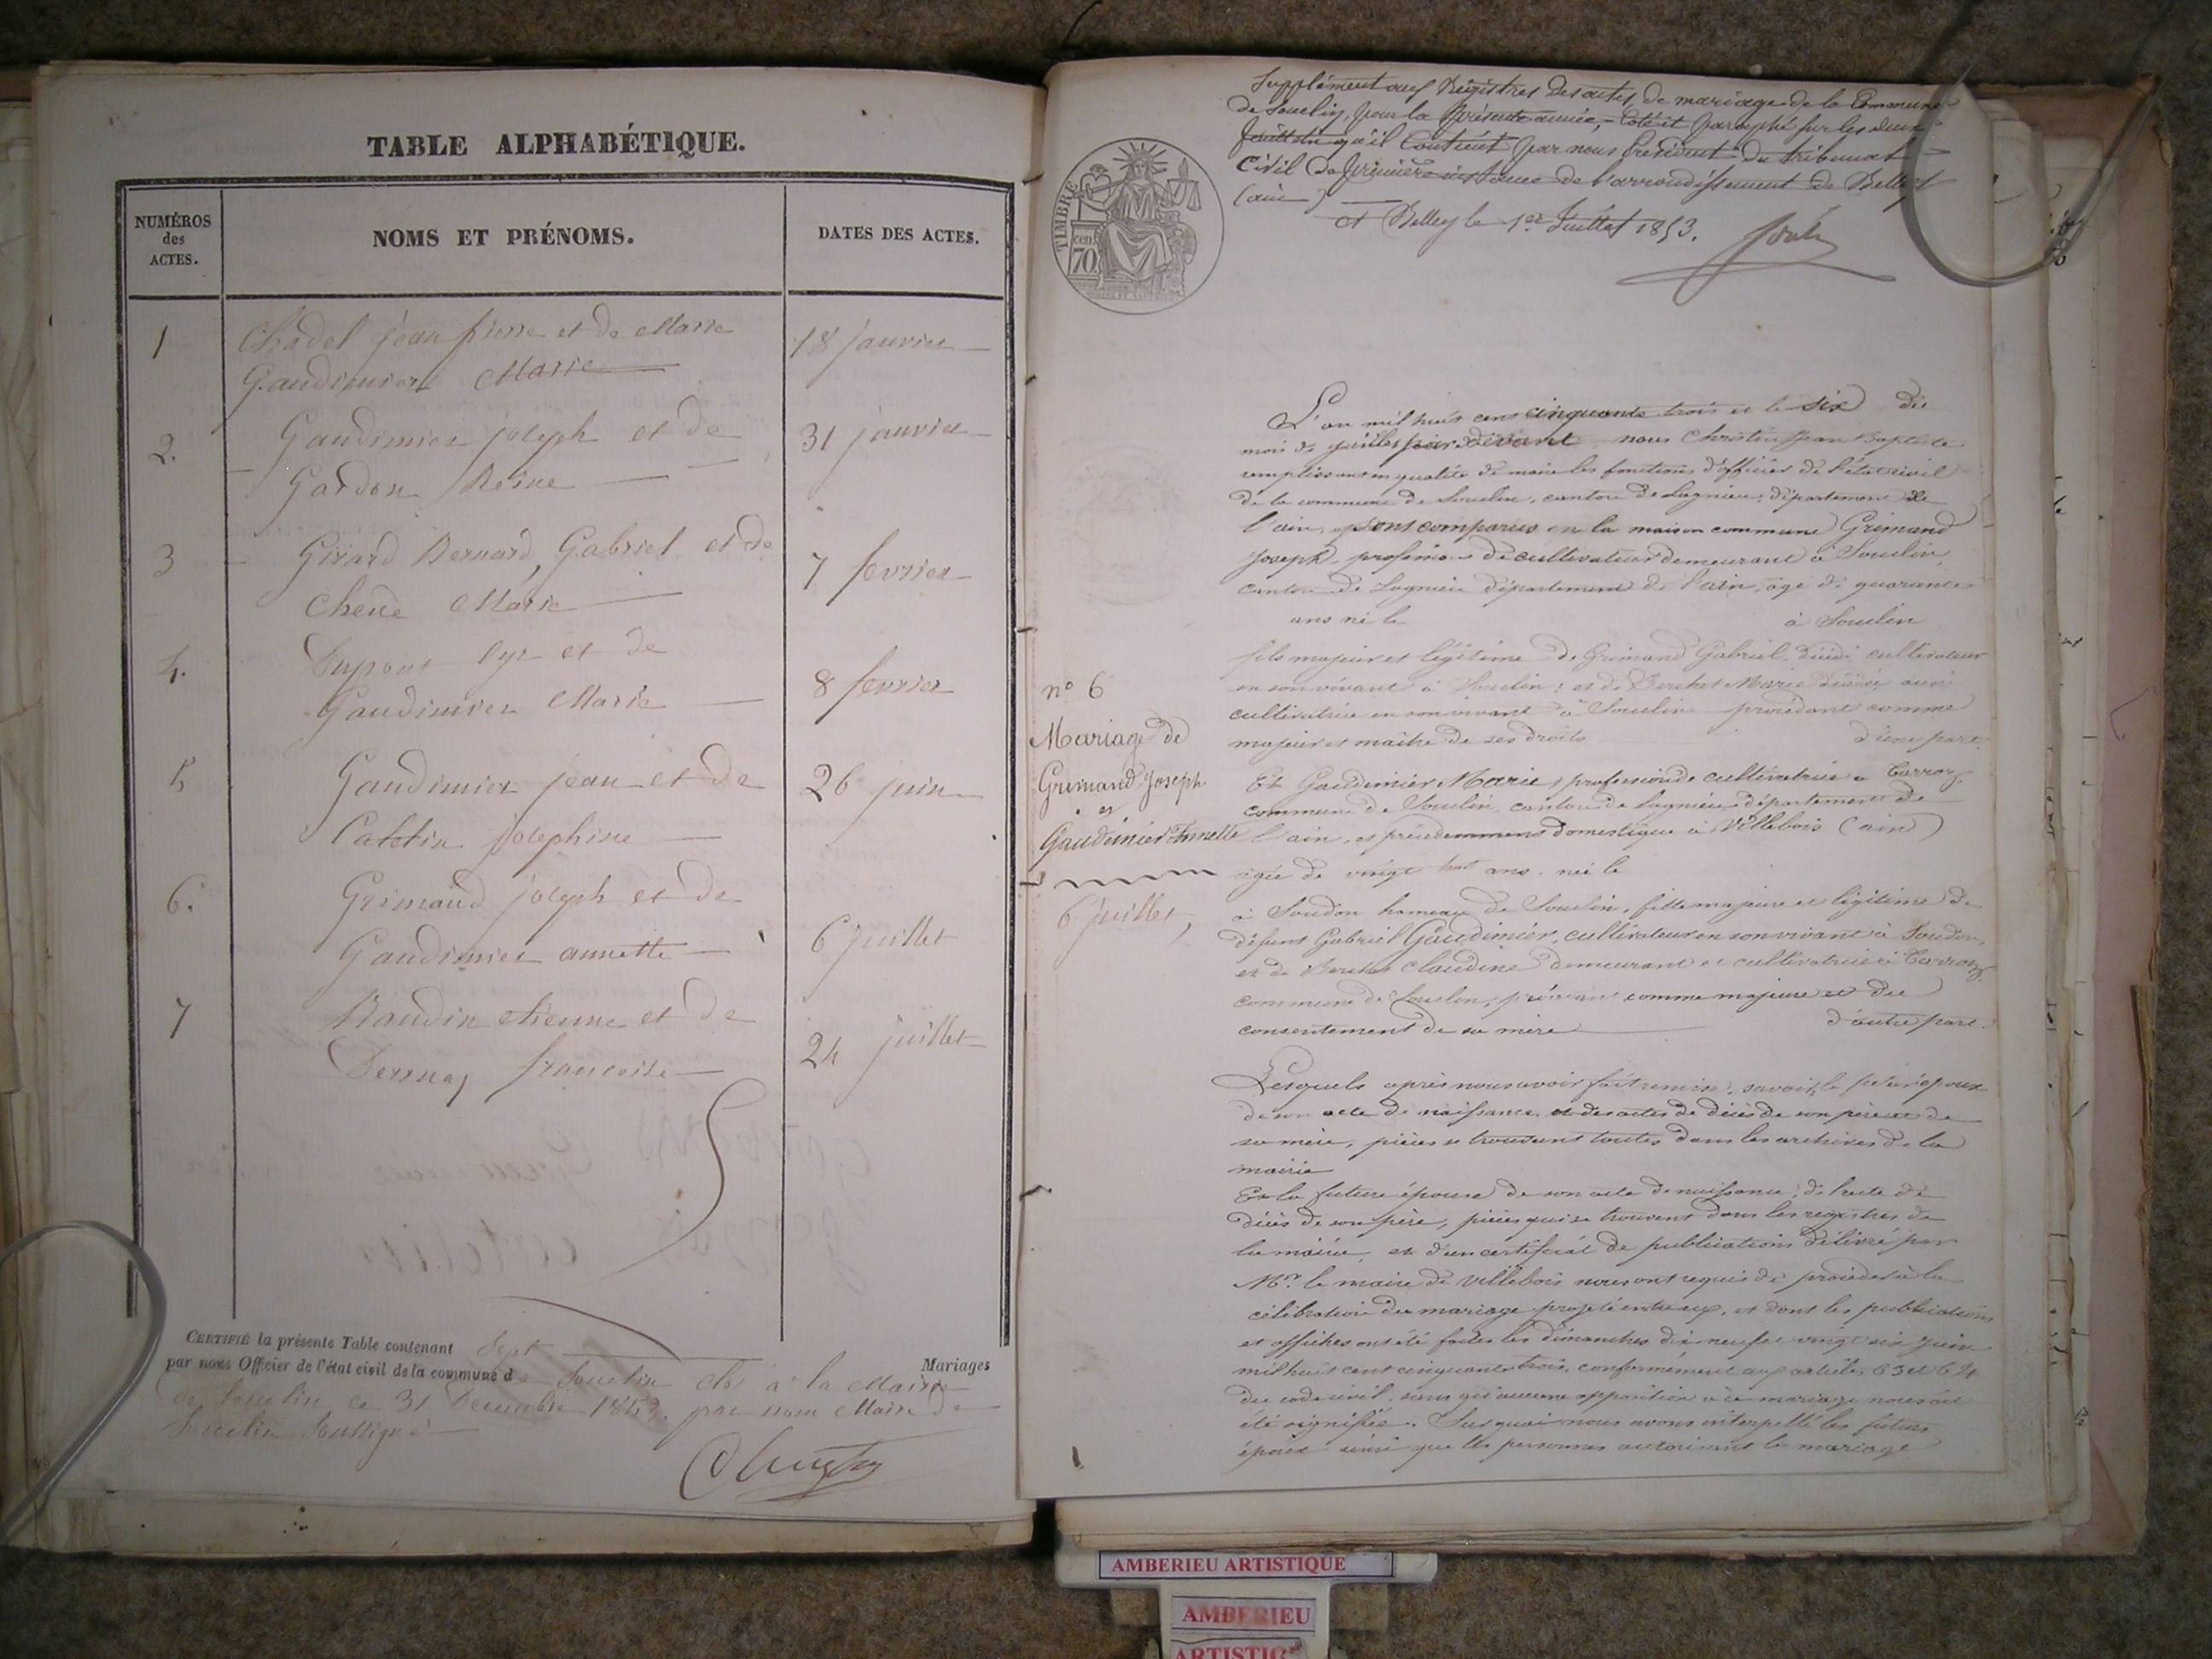 TABLE ALPHABÉTIQUE.
NUMÉROS des ACTES.
NOMS ET PRÉNOMS.
DATES DES ACTES.
1
Chadel jean pierre et de Marie
Gaudimier Marie
18 janvier
2.
Gaudimier joseph et de
Gardon Reine
31 janvier
3
Girard Bernard, Gabriel et de
Chene Marie
7 fevrier
4.
Dupont Cyr et de
Gaudimier Marie
8 fevrier
5
Gaudimier jean et de
josephine
26 juin
6.
Grimand joseph et de
Gaudimier annette
6 juillet
7
Baudin etienne et de
francoise
24 juillet
CERTIFIÉ la présente Table contenant Sept Mariages
par nous Officier de l'état civil de la commune d de Souclin clos à la Mairie
de Souclin le 31 Decembre 1853. par nous Maire de
Souclin Soussigné
TIMBRE
70 cent
Supplément aux Régistres des actes de mariage de la Commune
de Souclin, pour la présente année, Coté et paraphé sur les deux
feuillets qu'il Contient par nous President du tribunal
Civil de première instance de l'arrondissement de Belley
(ain)
A Belley le 1er Juillet 1853.
n° 6
Mariage de
Grimand Joseph
et
Gaudimier Annette
6 juillet,
L'an mil huit cent cinquante trois et le six du
mois de juillet par devant nous Christin Jean Baptiste
remplissant en qualité de maire les fonctions d'officier de l'état civil
de la commune de Souclin, canton de Lagnieu, département de
l'ain, sont comparus en la maison commune Grimand
Joseph, profession de cultivateur demeurant à Souclin,
canton de Lagnieu département de l'ain, agé de quarante
ans né le à Souclin
fils majeur et légitime de Grimand Gabriel, décédé cultivateur
en son vivant à Souclin; et de Berchet Marie décédée aussi
cultivatrice en son vivant à Souclin procédant comme
majeur et maitre de ses droits d'une part.
Et Gaudimier Marie, profession de cultivatrice à Carroz
commune de Souclin, canton de Lagnieu département de
l'ain, et précédemment domestique à Villebois (ain)
agée de vingt huit ans. née le
à Soudon hameau de Souclin, fille majeure et légitime de
défunt Gabriel Gaudimier, cultivateur en son vivant à Soudon,
et de Berchet Claudine demeurant et cultivatrice à Carroz
commune de Souclin, procédant comme majeure et du
consentement de sa mère d'autre part.
Lesquels après nous avoir fait remise, savoir, le futur époux
de son acte de naissance et des actes de décès de son père et de
sa mère, pièces se trouvant toutes dans les archives de la
mairie
Et la future épouse de son acte de naissance, de l'acte de
décès de son père, pièces qui se trouvent dans les registres de
la mairie, et d'un certificat de publications délivré par
Mr. le maire de Villebois nous ont requis de procéder à la
célébration du mariage projeté entre eux, et dont les publications
et affiches ont été faites les dimanches dix neuf et vingt six juin
mil huit cent cinquante trois, conformement aux articles 63 et 64
du code civil, sans qu'aucune opposition à ce mariage nous ait
été signifiée. Sur quoi nous avons interpellé les futurs
époux ainsi que les personnes autorisant le mariage
AMBERIEU ARTISTIQUE
AMBERIEU
ARTISTIQ